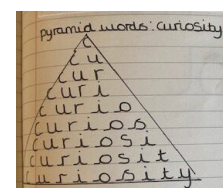 pyramid words: curiosity
c
cu
cur
curi
curio
curios
curiosi
curiosit
curiosity